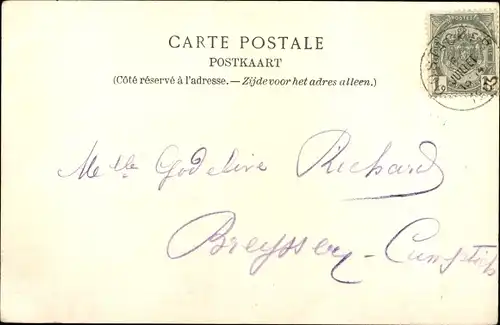 CARTE POSTALE
POSTKAART
(Côté réservé à l'adresse. — Zijde voor het adres alleen.)
POSTES
JUILLET
1
Melle Godelive Richard
Breyssem - Cumptich